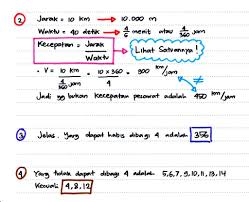 2 Jarak = 10 km → 10.000 m
Waktu = 40 detik → 4/6 menit atau 4/360 jam
Kecepatan = Jarak / Waktu → Lihat Satuannya!
• V = 10 km / 4/360 jam = 10 x 360 / 4 = 900 km/jam
≠
Jadi yg bukan kecepatan pesawat adalah 450 km/jam
3 Jelas. Yang dapat habis dibagi 4 adalah 356
4 Yang tidak dapat dibagi 4 adalah 5,6,7,9,10,11,13,14
Kecuali 4,8,12